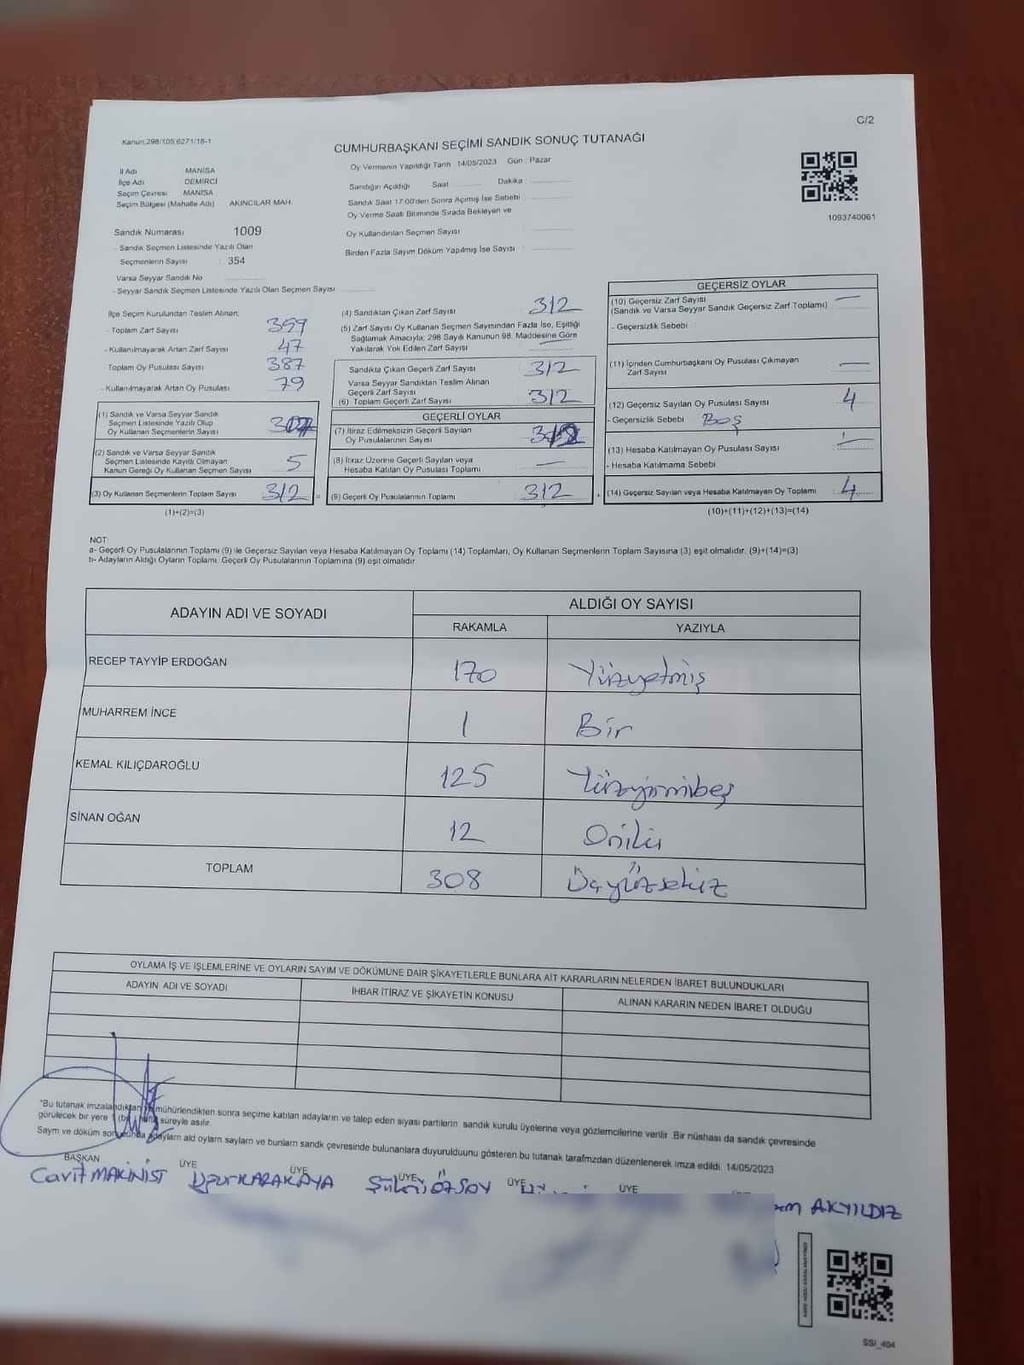 C/2
Kanun:298/105;6271/18-1
CUMHURBAŞKANI SEÇİMİ SANDIK SONUÇ TUTANAĞI
Oy Vermenin Yapıldığı Tarih 14/05/2023 Gün : Pazar
İl Adı MANİSA
İlçe Adı DEMİRCİ
Seçim Çevresi MANİSA
Seçim Bölgesi (Mahalle Adı) AKINCILAR MAH.
Sandığın Açıldığı Saat Dakika
Sandık Saat 17.00'den Sonra Açılmış İse Sebebi
Oy Verme Saati Bitiminde Sırada Bekleyen ve
Oy Kullandırılan Seçmen Sayısı
Birden Fazla Sayım Döküm Yapılmış İse Sayısı
1093740061
Sandık Numarası 1009
- Sandık Seçmen Listesinde Yazılı Olan
Seçmenlerin Sayısı : 354
Varsa Seyyar Sandık No
- Seyyar Sandık Seçmen Listesinde Yazılı Olan Seçmen Sayısı
İlçe Seçim Kurulundan Teslim Alınan;
- Toplam Zarf Sayısı 359
- Kullanılmayarak Artan Zarf Sayısı 47
Toplam Oy Pusulası Sayısı 387
- Kullanılmayarak Artan Oy Pusulası 79
(1) Sandık ve Varsa Seyyar Sandık
Seçmen Listesinde Yazılı Olup
Oy Kullanan Seçmenlerin Sayısı 307
(2) Sandık ve Varsa Seyyar Sandık
Seçmen Listesinde Kayıtlı Olmayan
Kanun Gereği Oy Kullanan Seçmen Sayısı 5
(3) Oy Kullanan Seçmenlerin Toplam Sayısı 312 =
(1)+(2)=(3)
(4) Sandıktan Çıkan Zarf Sayısı 312
(5) Zarf Sayısı Oy Kullanan Seçmen Sayısından Fazla İse, Eşitliği
Sağlamak Amacıyla; 298 Sayılı Kanunun 98. Maddesine Göre
Yakılarak Yok Edilen Zarf Sayısı —
Sandıkta Çıkan Geçerli Zarf Sayısı 312
Varsa Seyyar Sandıktan Teslim Alınan
Geçerli Zarf Sayısı
(6) Toplam Geçerli Zarf Sayısı 312
GEÇERLİ OYLAR
(7) İtiraz Edilmeksizin Geçerli Sayılan
Oy Pusulalarının Sayısı 312
(8) İtiraz Üzerine Geçerli Sayılan veya
Hesaba Katılan Oy Pusulası Toplamı —
(9) Geçerli Oy Pusulalarının Toplamı 312 +
GEÇERSİZ OYLAR
(10) Geçersiz Zarf Sayısı —
(Sandık ve Varsa Seyyar Sandık Geçersiz Zarf Toplamı)
- Geçersizlik Sebebi
(11) İçinden Cumhurbaşkanı Oy Pusulası Çıkmayan
Zarf Sayısı —
(12) Geçersiz Sayılan Oy Pusulası Sayısı 4
- Geçersizlik Sebebi Boş
(13) Hesaba Katılmayan Oy Pusulası Sayısı —
- Hesaba Katılmama Sebebi
(14) Geçersiz Sayılan veya Hesaba Katılmayan Oy Toplamı 4
(10)+(11)+(12)+(13)=(14)
NOT:
a- Geçerli Oy Pusulalarının Toplamı (9) ile Geçersiz Sayılan veya Hesaba Katılmayan Oy Toplamı (14) Toplamları, Oy Kullanan Seçmenlerin Toplam Sayısına (3) eşit olmalıdır. (9)+(14)=(3)
b- Adayların Aldığı Oyların Toplamı, Geçerli Oy Pusulalarının Toplamına (9) eşit olmalıdır
ADAYIN ADI VE SOYADI ALDIĞI OY SAYISI
RAKAMLA YAZIYLA
RECEP TAYYİP ERDOĞAN 170 Yüzyetmiş
MUHARREM İNCE 1 Bir
KEMAL KILIÇDAROĞLU 125 Yüzyirmibeş
SİNAN OĞAN 12 Oniki
TOPLAM 308 Üçyüzsekiz
OYLAMA İŞ VE İŞLEMLERİNE VE OYLARIN SAYIM VE DÖKÜMÜNE DAİR ŞİKAYETLERLE BUNLARA AİT KARARLARIN NELERDEN İBARET BULUNDUKLARI
ADAYIN ADI VE SOYADI İHBAR İTİRAZ VE ŞİKAYETİN KONUSU ALINAN KARARIN NEDEN İBARET OLDUĞU
"Bu tutanak imzalandıktan mühürlendikten sonra seçime katılan adayların ve talep eden siyasi partilerin sandık kurulu üyelerine veya gözlemcilerine verilir. Bir nüshası da sandık çevresinde
görülecek bir yere süreyle asılır.
Sayım ve döküm adayların oyların ve bunların sandık çevresinde bulunanlara duyurulduunu gösteren bu tutanak tarafmzdan düzenlenerek imza edildi. 14/05/2023
BAŞKAN ÜYE ÜYE ÜYE ÜYE ÜYE
Cavit MAKİNİST Uğur KARAKAYA Şükrü ÖZSOY AKYILDIZ
SSİ_404